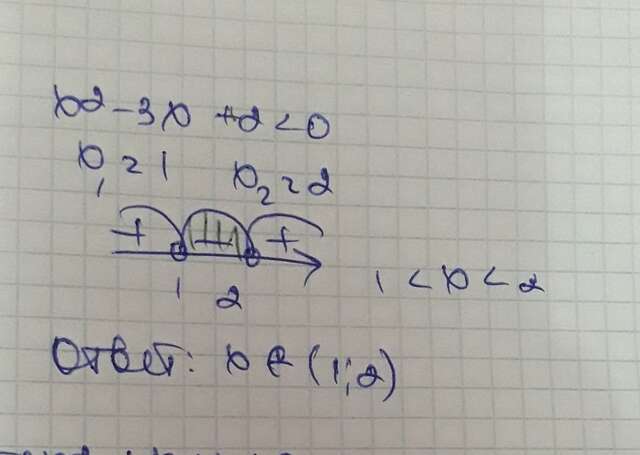 x² - 3x + 2 < 0
x₁ = 1 x₂ = 2
+ - +
1 2
1 < x < 2
Ответ: x ∈ (1; 2)